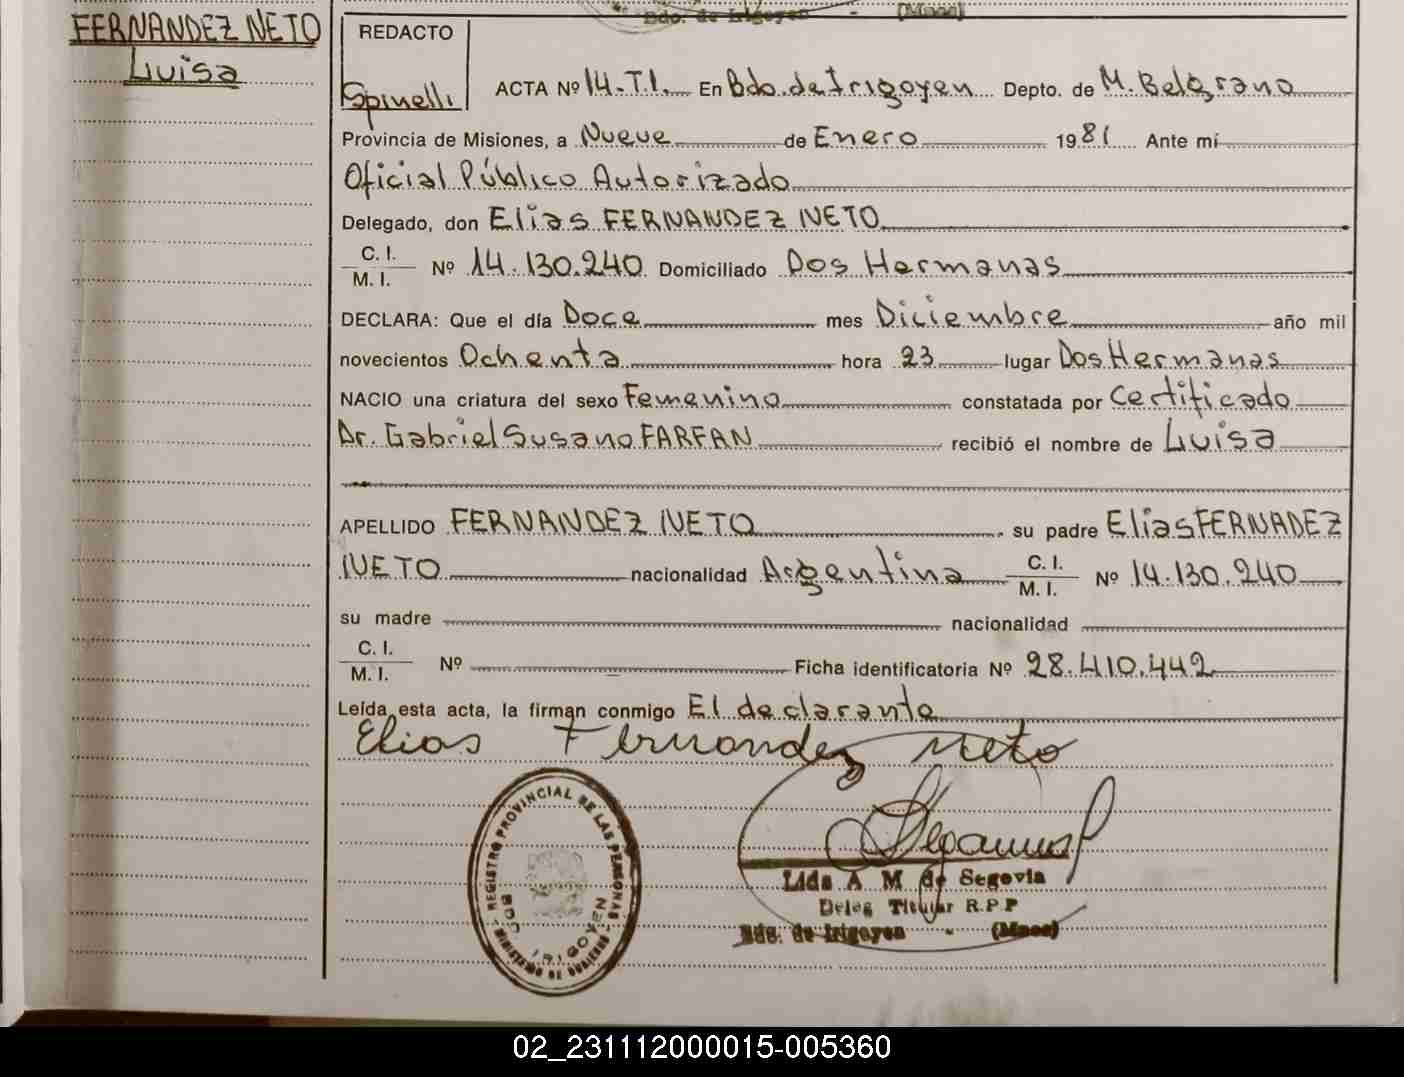 Bdo. de Irigoyen - (Mnes)
FERNANDEZ NETO
Luisa
REDACTO
Spinelli
ACTA Nº 14-T.I. En Bdo. de Irigoyen Depto. de M. Belgrano
Provincia de Misiones, a Nueve de Enero 1981 Ante mí
Oficial Público Autorizado
Delegado, don Elias FERNANDEZ NETO
C. I.
M. I. Nº 14.130.240 Domiciliado Dos Hermanas
DECLARA: Que el día Doce mes Diciembre año mil
novecientos Ochenta hora 23 lugar Dos Hermanas
NACIO una criatura del sexo Femenino constatada por Certificado
Dr. Gabriel Susano FARFAN recibió el nombre de Luisa
APELLIDO FERNANDEZ NETO su padre Elias FERNADEZ
NETO nacionalidad Argentina C. I. M. I. Nº 14.130.240
su madre nacionalidad
C. I.
M. I. Nº Ficha identificatoria Nº 28.410.442
Leída esta acta, la firman conmigo El declarante
Elias Fernandez Neto
REGISTRO PROVINCIAL DE LAS PERSONAS
MINISTERIO DE GOBIERNO
BDO. IRIGOYEN
Lida A M de Segovia
Deleg Titular R.P.P
Bdo. de Irigoyen - (Mnes)
02_231112000015-005360